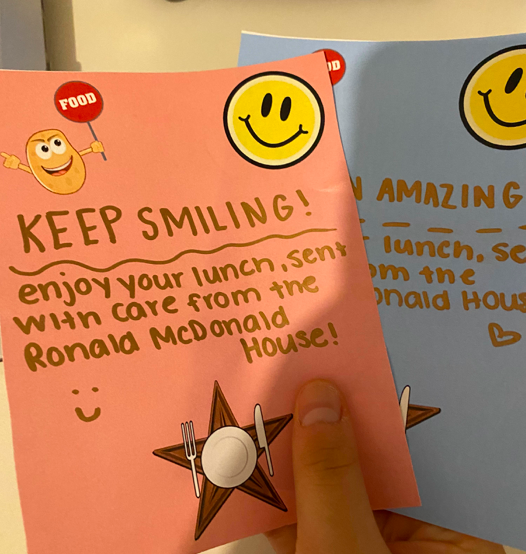 FOOD
KEEP SMILING!
enjoy your lunch, sent
with care from the
Ronald McDonald
House!
AMAZING
lunch,
the